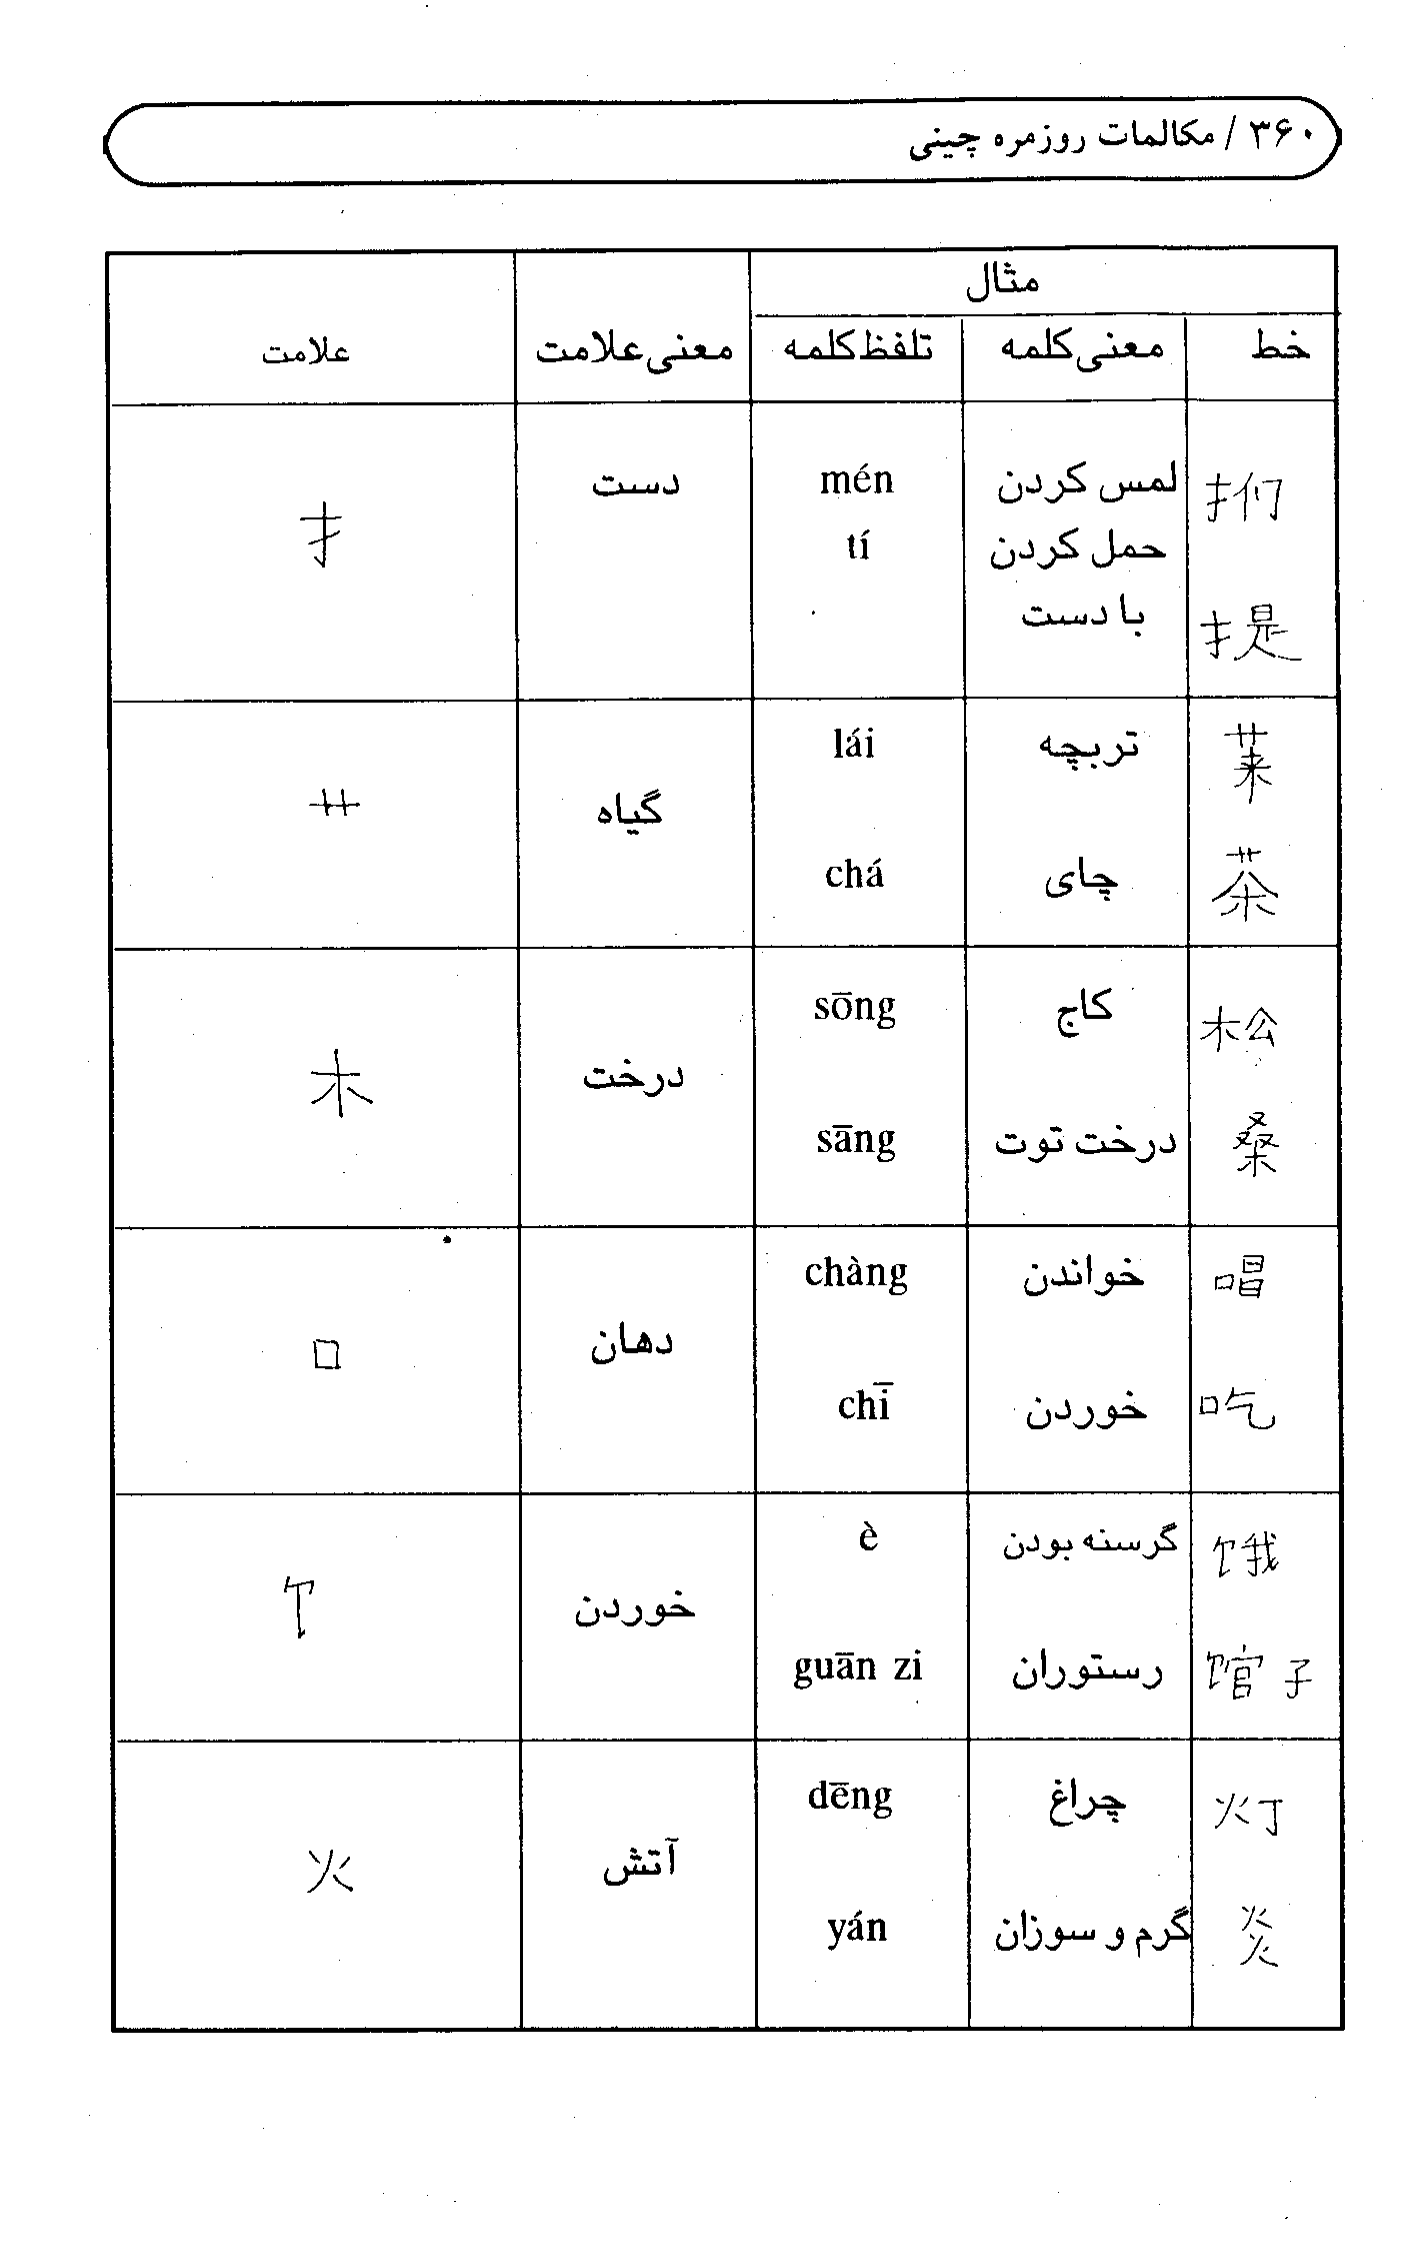 ۳۶۰ / مکالمات روزمره چینی
مثال
خط معنی کلمه تلفظ کلمه معنی علامت علامت
扪 لمس کردن mén دست 扌
حمل کردن tí
提 با دست
莱 تربچه lái
گیاه 艹
茶 چای chá
松 کاج sōng
درخت 木
桑 درخت توت sāng
唱 خواندن chàng
دهان 口
吃 خوردن chī
饿 گرسنه بودن è
خوردن 饣
馆子 رستوران guān zi
灯 چراغ dēng
آتش 火
炎 گرم و سوزان yán